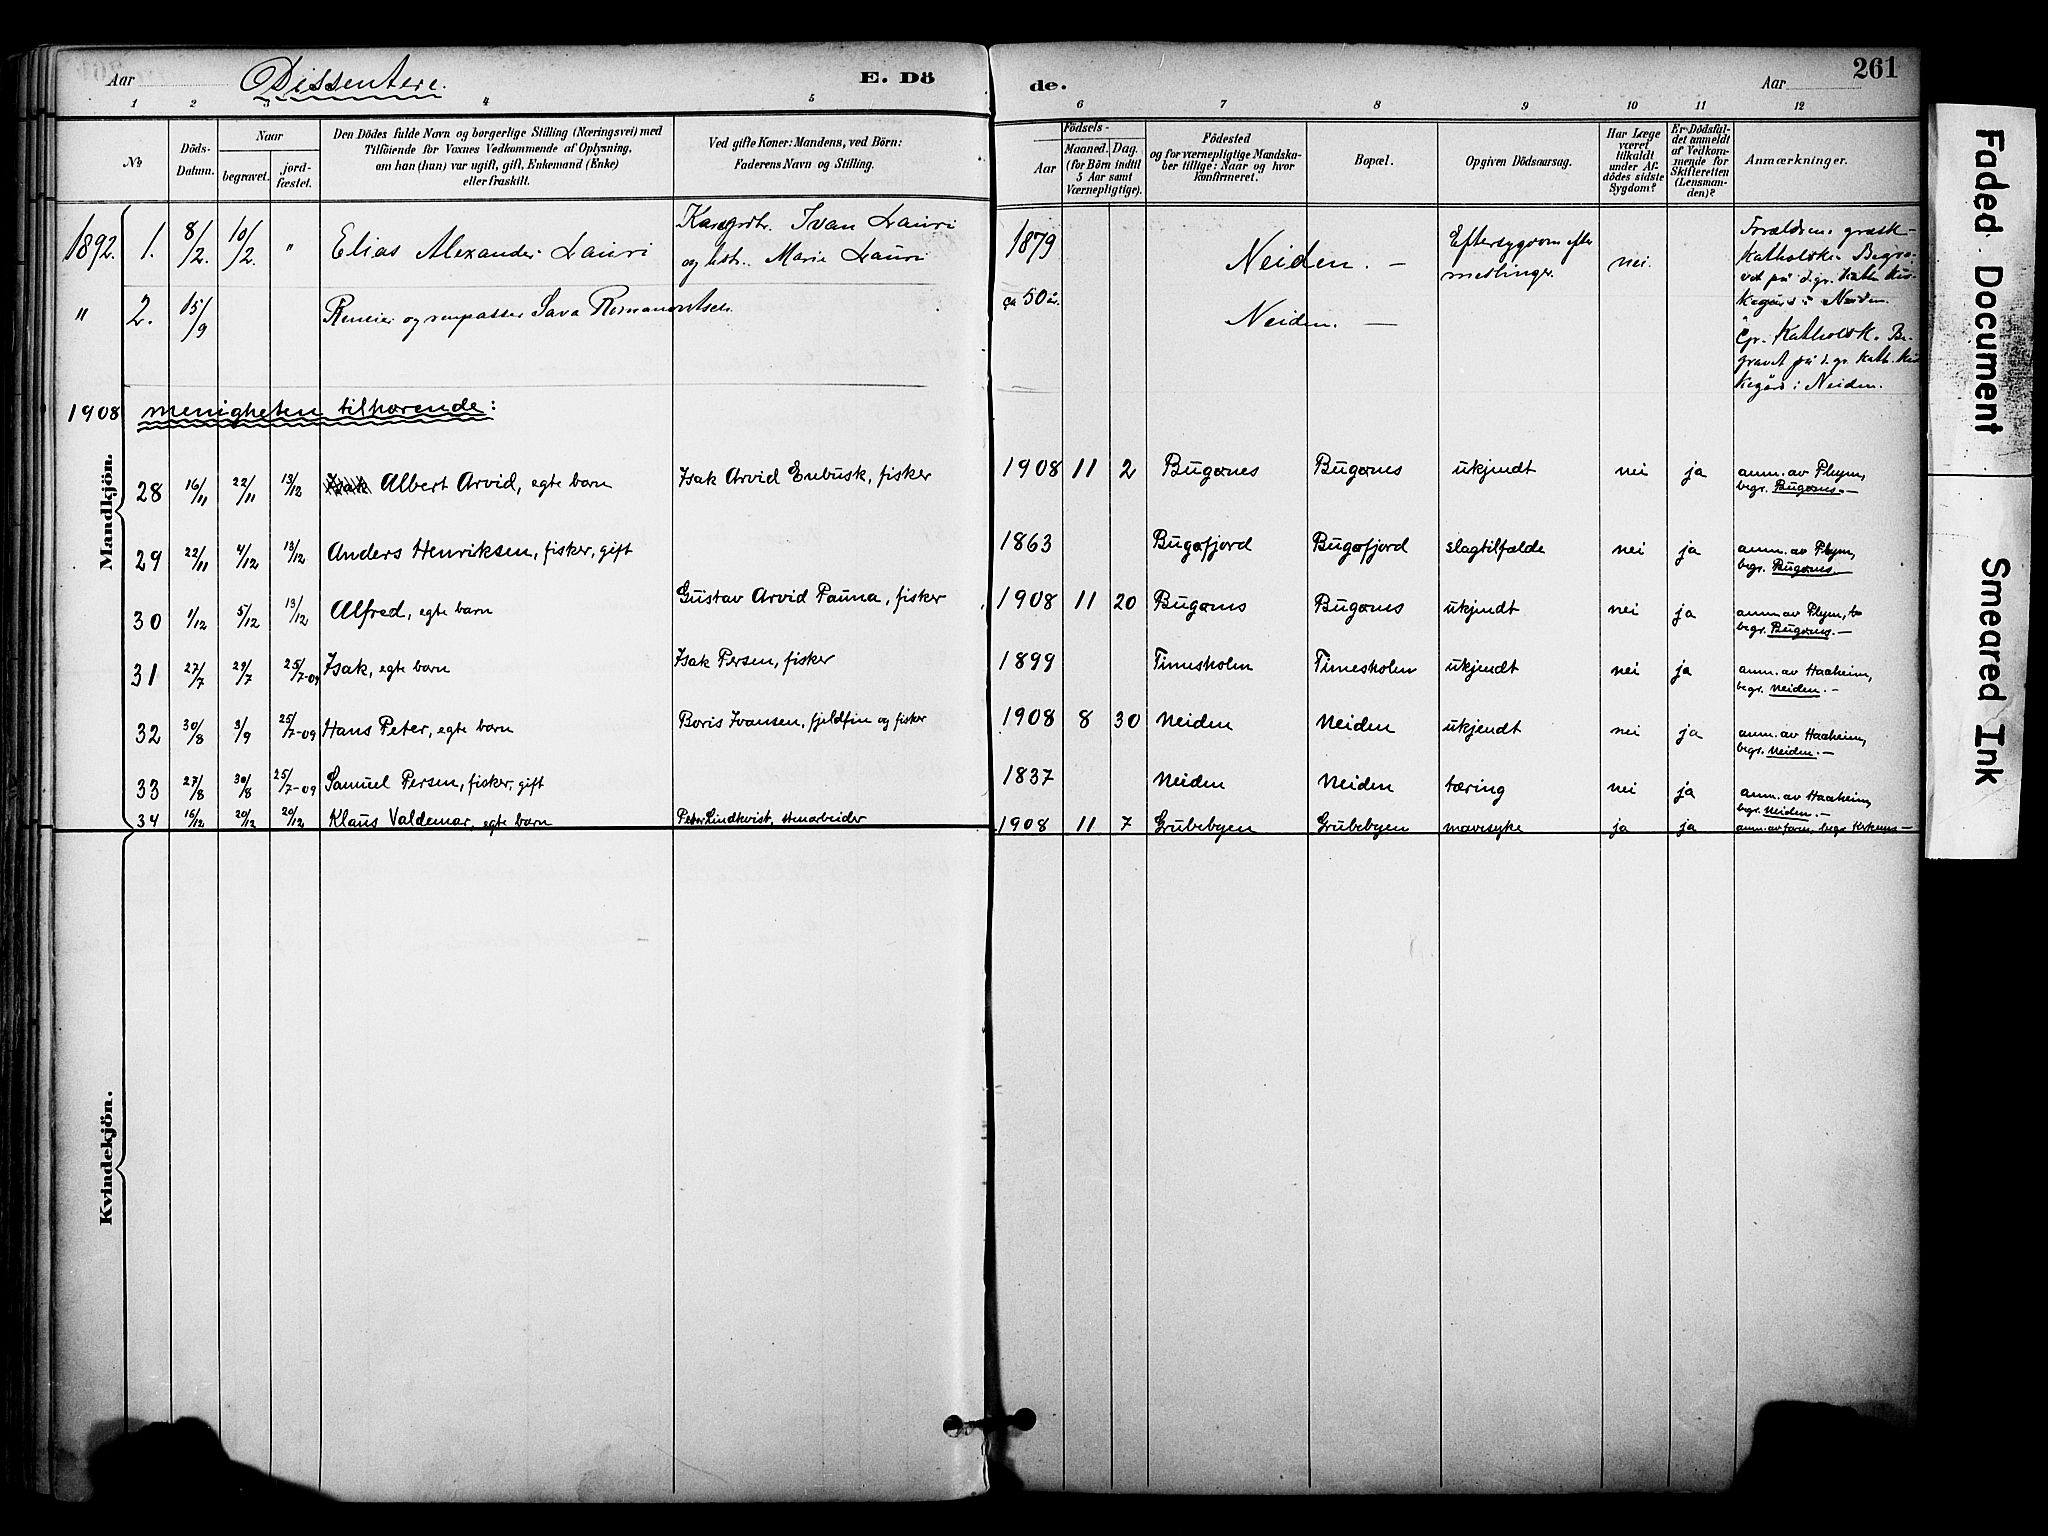 Aar Dissentere. E. Dö de. Aar 261
1 2 3 4 5 6 7 8 9 10 11 12
No
Döds-Datum.
Naar
begravet.
jord-fæstet.
Den Dödes fulde Navn og borgerlige Stilling (Næringsvei) med
Tilföiende for Voxnes Vedkommende af Oplysning,
om han (hun) var ugift, gift, Enkemand (Enke)
eller fraskilt.
Ved gifte Koner: Mandens, ved Börn:
Faderens Navn og Stilling.
Födsels-
Aar
Maaned. Dag.
(for Börn indtil
5 Aar samt
Værnepligtige).
Födested
og for værnepligtige Mandska-
ber tillige: Naar og hvor
konfirmeret.
Bopæl.
Opgiven Dödsaarsag.
Har Læge
været
tilkaldt
under Af-
dödes sidste
Sygdom?
Er Dödsfal-
det anmeldt
af Vedkom-
mende for
Skifteretten
(Lensman-
den)?
Anmærkninger.
Mandkjön.
1892. 1. 8/2. 10/2. " Elias Alexander Lauri
Ivan Lauri
og hstr. Marie Lauri
1879 Neiden. —
Eftersygdom efter
meslinger.
nei.
Forældrene græsk-
Katholske. Begra-
vet på d. gr. kath. kir-
kegård i Neiden.
" 2. 15/9 Sava Romanowitsch
ca 50 år. Neiden. —
Gr. Katholsk. Be-
gravet på d. gr. kath. kir
kegård i Neiden.
1908 menigheten tilhørende:
28 16/11 22/11 13/12 Albert Arvid, egte barn Isak Arvid Enbusk, fisker 1908 11 2 Bugønes Bugønes ukjendt nei ja anm. av Pleym,
begr. Bugønes.—
29 22/11 4/12 13/12 Anders Henriksen, fisker, gift 1863 Bugøfjord Bugøfjord slagtilfælde nei ja anm. av Pleym,
begr. Bugønes.—
30 1/12 5/12 13/12 Alfred, egte barn Gustav Arvid Pauna, fisker 1908 11 20 Bugønes Bugønes ukjendt nei ja anm. av Pleym,
begr. Bugønes.—
31 27/7 29/7 25/7-09 Isak, egte barn Isak Persen, fisker 1899 Timesholm Timesholm ukjendt nei ja anm. av Haaheim,
begr. Neiden.—
32 30/8 3/9 25/7-09 Hans Peter, egte barn Boris Ivansen, fjeldfin og fisker 1908 8 30 Neiden Neiden ukjendt nei ja anm. av Haaheim,
begr. Neiden.—
33 27/8 30/8 25/7-09 Samuel Persen, fisker, gift 1837 Neiden Neiden tæring nei ja anm. av Haaheim,
begr. Neiden.—
34 16/12 20/12 20/12 Klaus Valdemar, egte barn Peter Lindkvist, stenarbeider 1908 11 7 Grubebyen Grubebyen mavesyke ja ja anm. av faren, begr. Kirkenes—
Kvindekjön.
Faded Document
Smeared Ink